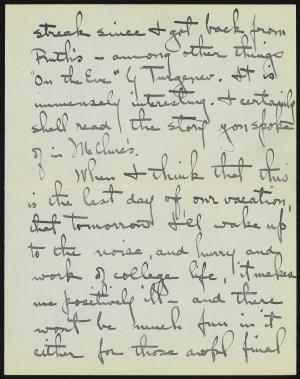 streak since I got back from
Ruth's - among other things
"On the Eve" by Turgenev. It is
immensely interesting. I certainly
shall read the story you spoke
of in McClure's.
When I think that this
is the last day of our vacation,
that tomorrow I'll wake up
to the noise, and hurry and
work of college life, it makes
me positively ill - and there
won't be much fun in it
either for those awful final